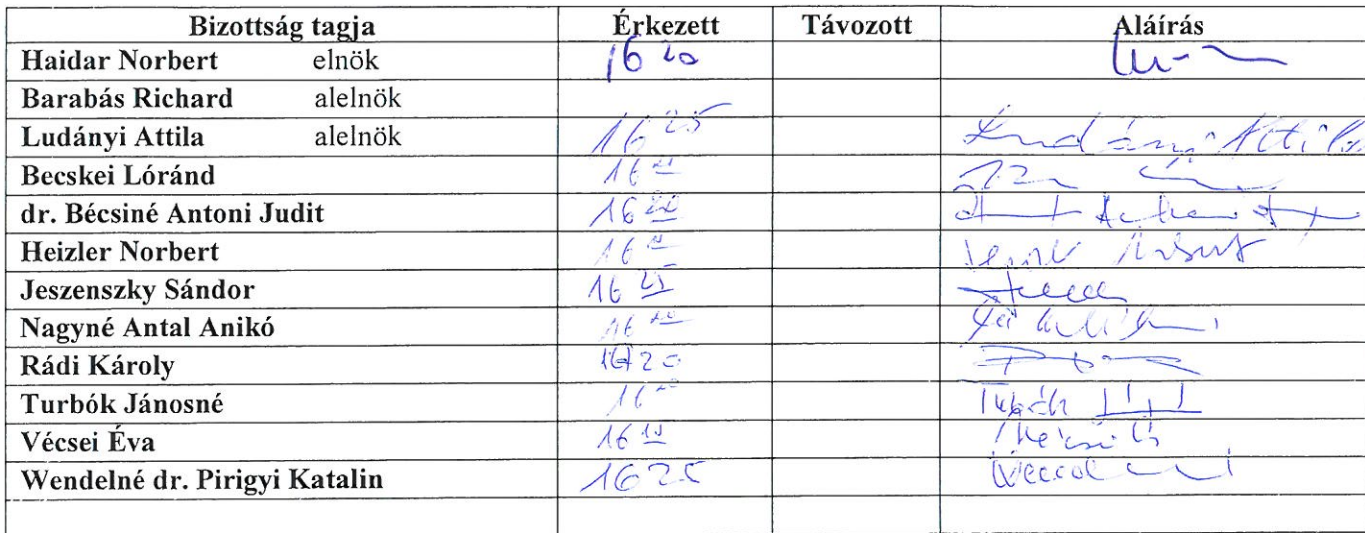 Bizottság tagja Érkezett Távozott Aláírás
Haidar Norbert elnök 16 20
Barabás Richard alelnök
Ludányi Attila alelnök 16 25 Ludányi Attila
Becskei Lóránd 16
dr. Bécsiné Antoni Judit 16 20
Heizler Norbert 16
Jeszenszky Sándor 16 25
Nagyné Antal Anikó 16 20
Rádi Károly 16 20
Turbók Jánosné 16
Vécsei Éva 16
Wendelné dr. Pirigyi Katalin 16 25